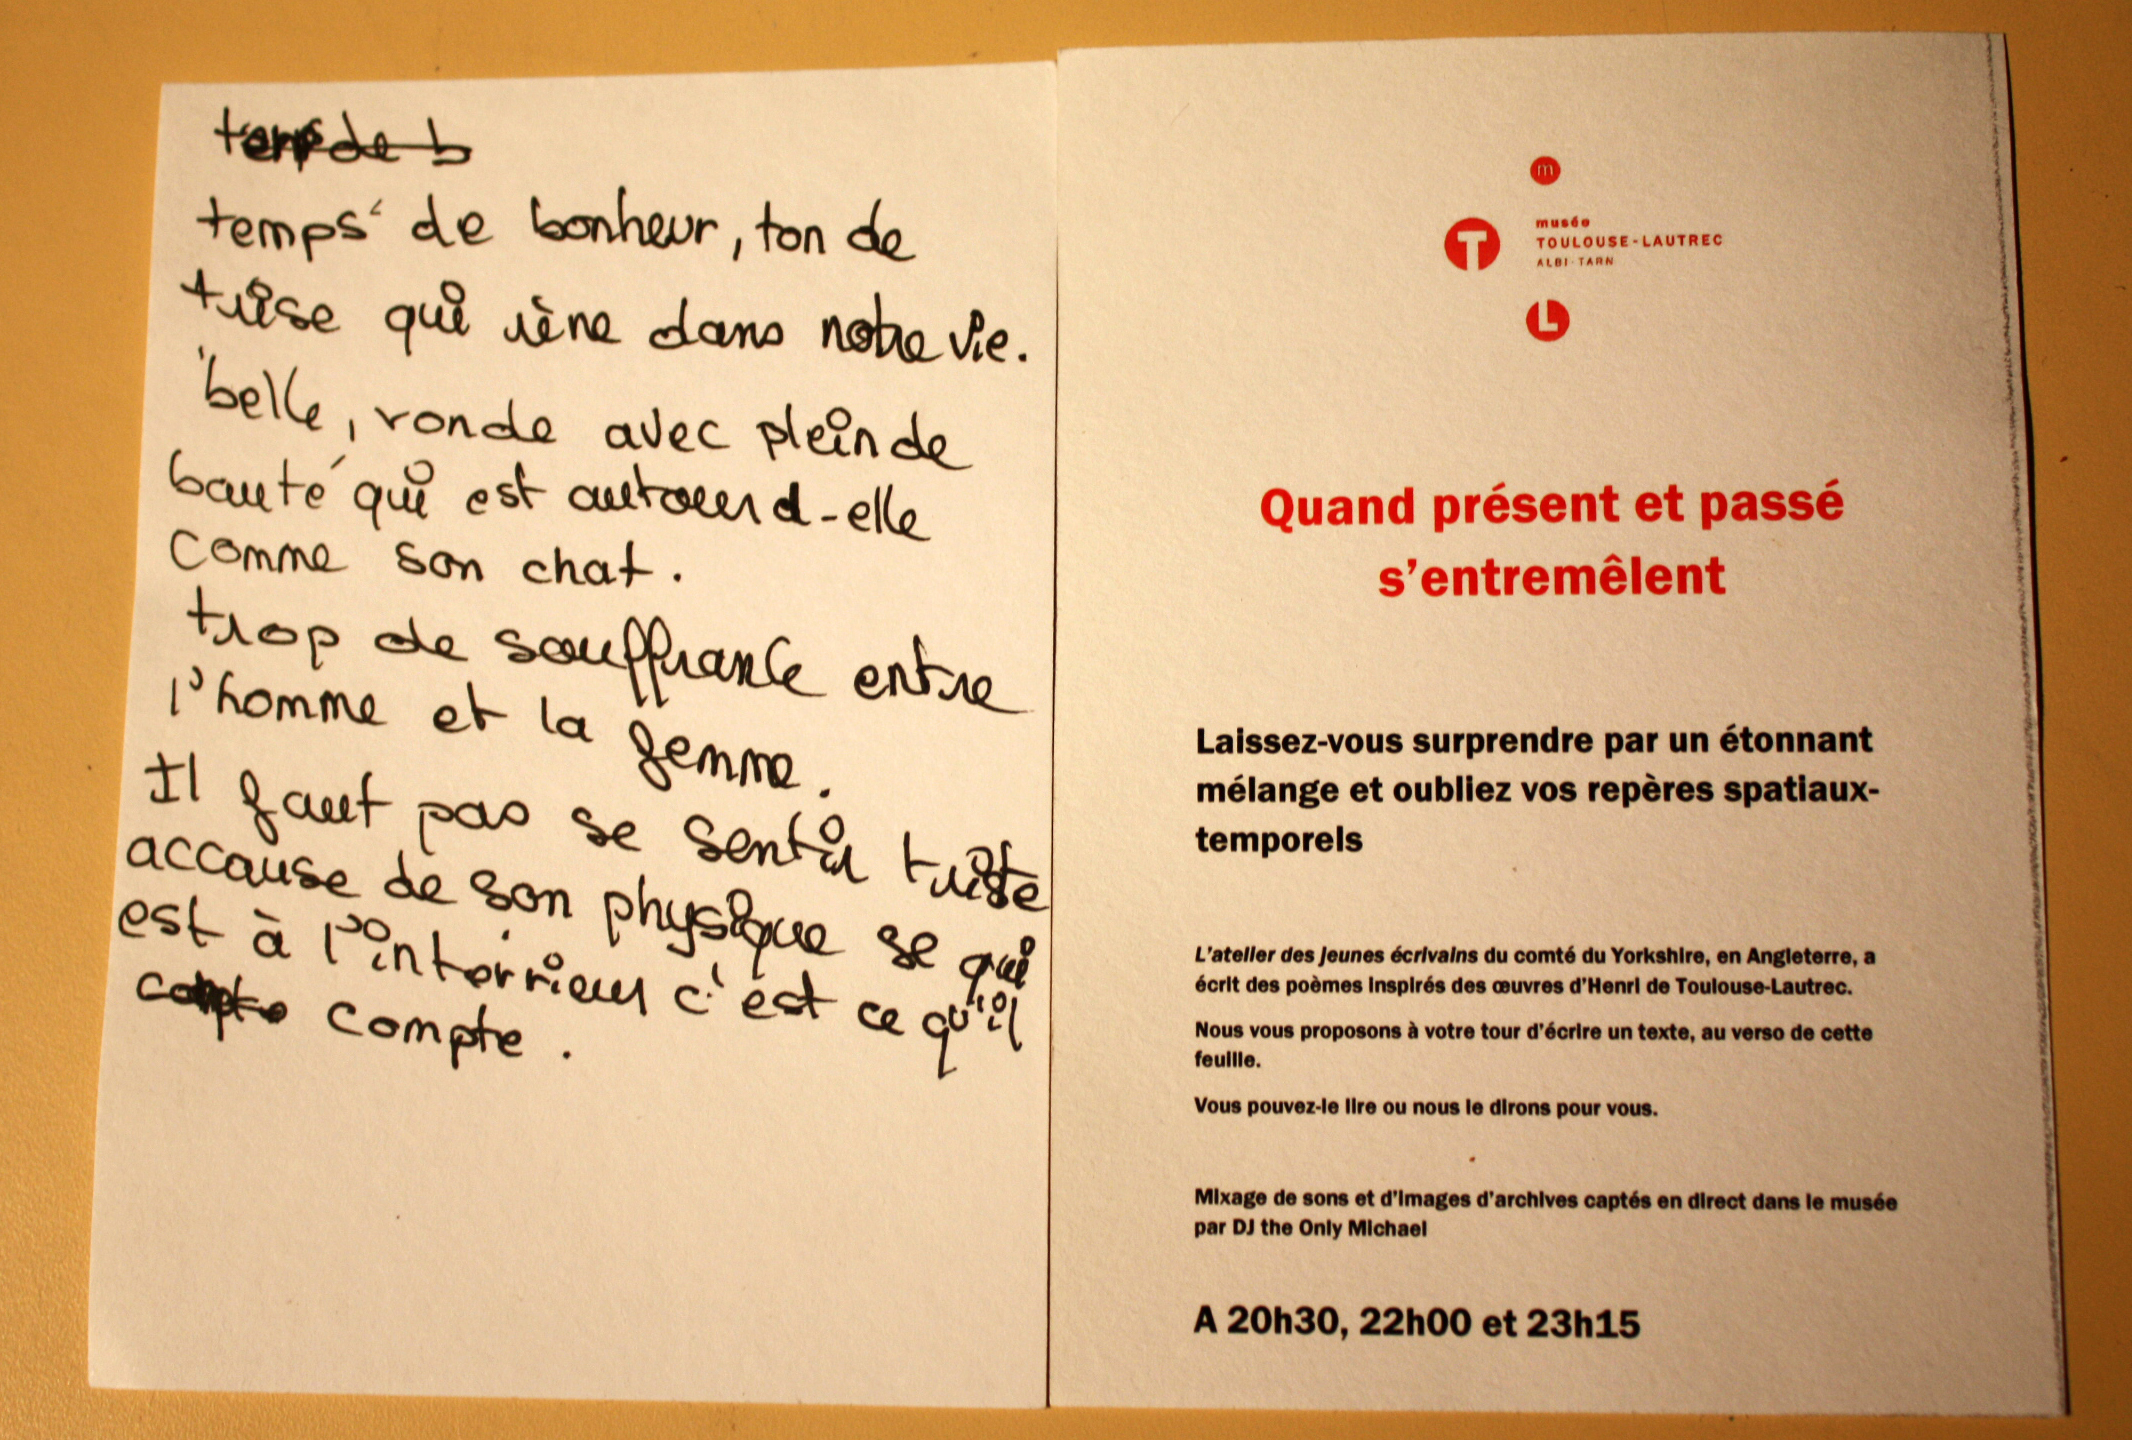 temps de b
temps de bonheur, ton de
trise qui rène dans notre vie.
belle, ronde avec plein de
bauté qui est autour d-elle
comme son chat.
trop de souffrance entre
l'homme et la femme.
Il faut pas se sentir triste
accause de son physique se qui
est à l'intorrieur c'est ce qu'il
compte compte.
m
T
musée
TOULOUSE-LAUTREC
ALBI-TARN
L
Quand présent et passé
s'entremêlent
Laissez-vous surprendre par un étonnant
mélange et oubliez vos repères spatiaux-
temporels
L'atelier des jeunes écrivains du comté du Yorkshire, en Angleterre, a
écrit des poèmes inspirés des œuvres d'Henri de Toulouse-Lautrec.
Nous vous proposons à votre tour d'écrire un texte, au verso de cette
feuille.
Vous pouvez-le lire ou nous le dirons pour vous.
Mixage de sons et d'images d'archives captés en direct dans le musée
par DJ the Only Michael
A 20h30, 22h00 et 23h15